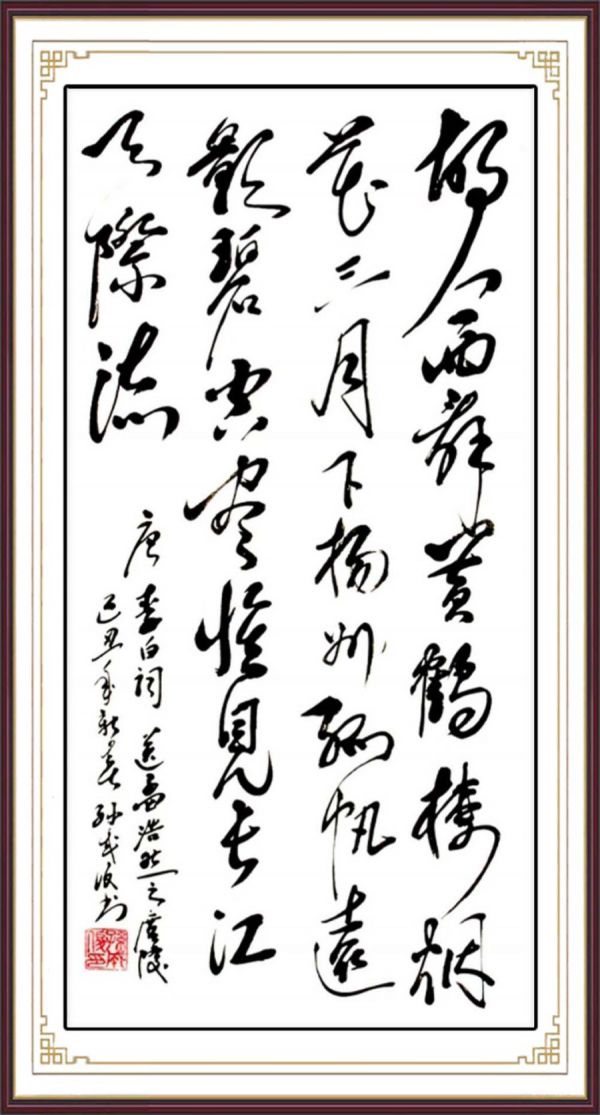 故人西辞黄鶴楼烟
花三月下揚州孤帆遠
影碧空尽惟見长江
天際流
唐李白词送孟浩然之广陵
己丑年新春孙书